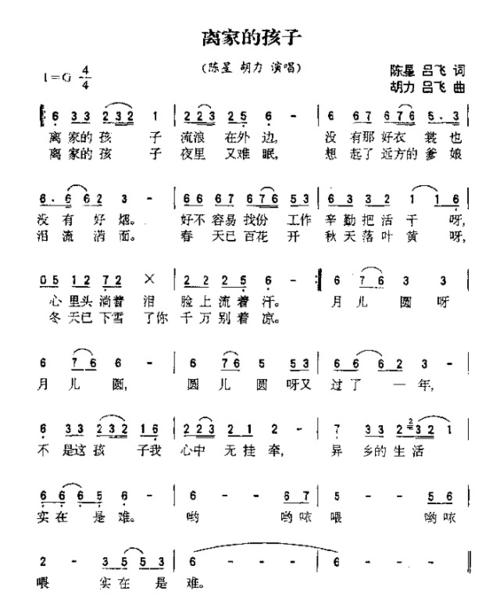 离家的孩子
(陈星 胡力 演唱)
1=G 4/4
陈星 吕飞 词
胡力 吕飞 曲
6 3 3 2 3 2 | 6 7 6 2 2 5 | 6 6 7 6 7 6 5 . 3
离 家 的 孩 子 流浪 在外 边, 没 有那 好衣 裳也
离 家 的 孩 子 夜里 又难 眠, 想 起了 远方的 爹 娘
6 . 6 6 2 3 - | 6 6 6 6 7 6 6 5 | 3 . 3 3 2 1 1 6
没 有 好 烟。 好不 容易 找份 工作 辛勤 把活 干 呀,
泪 流 满 面。 春 天已 百花 开 秋天 落叶 黄 呀,
0 5 1 2 7 2 × | 2 2 2 2 5 6 - | 6 7 6 3 3
心 里头 淌着 泪 脸 上 流 着 汗。 月 儿 圆 呀
冬 天已 下雪 了你 千 万 别 着 凉。
6 7 6 6 - | 6 7 6 5 5 3 | 6 6 6 6 2 3 -
月 儿 圆, 圆 儿 圆 呀又 过 了 一 年,
6 3 3 2 3 2 1 6 | 2 2 3 2 1 2 - | 7 3 3 2 2 3 2 1
不 是这 孩 子我 心中 无 挂 牵, 异 乡的 生 活
6 6 6 5 6 - | 6 - - 6 7 | 5 - - 5 6
实在 是 难。 哟 哟咴 喂 哟咴
2 - - - | 3 5 5 3 5 6 - | 6 - - - | 6 - - -
喂 实在 是 难。